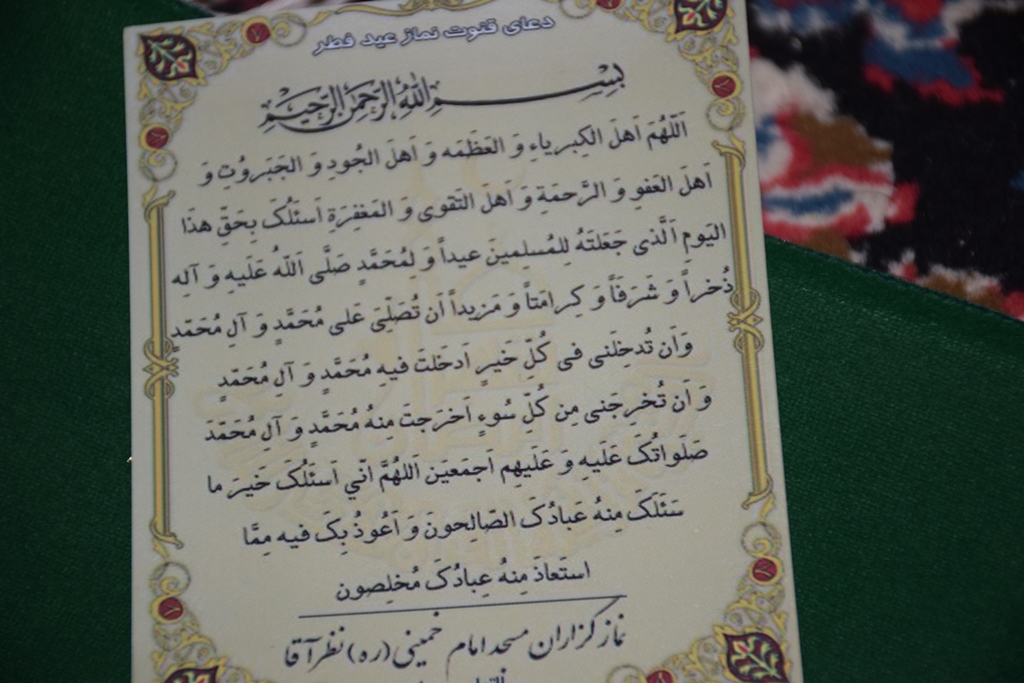 دعای قنوت نماز عید فطر
بِسْمِ اللهِ الرَّحْمنِ الرَّحیمِ
اَللّهُمَ اَهلَ الکِبریاءِ وَ العَظَمَه وَ اَهلَ الجُودِ وَ الجَبَروُتِ وَ
اَهلَ العَفوِ وَ الرَّحمَةِ وَ اَهلَ التَقوی وَ المَغفِرَةِ اَسئَلُکَ بِحَقِّ هذَا
الیَومِ اَلَّذی جَعَلتَهُ لِلمُسلِمینَ عیداً وَ لِمُحَمَّدٍ صَلَّی اَللّهُ عَلَیهِ وَ آلِهِ
ذُخراً وَ شَرَفَاً وَ کِرامَتاً وَ مَزیداً اَن تُصَلّیَ عَلی مُحَمَّدٍ وَ آلِ مُحَمّدٍ
وَاَن تُدخِلَنی فی کُلِّ خَیرٍ اَدخَلتَ فیهِ مُحَمَّدٍ وَ آلِ مُحَمّدٍ
وَ اَن تُخرِجَنی مِن کُلِّ سُوءٍ اَخرَجتَ مِنهُ مُحَمَّدٍ وَ آلِ مُحَمّدَ
صَلَواتُکَ عَلَیهِ وَ عَلَیهِم اَجمَعیَن اَللهُمَّ اِنّي اَسئَلُکَ خَیرَ ما
سَئَلَکَ مِنهُ عَبادُکَ الصّالِحونَ وَ اَعُوذُ بِکَ فیه مِمَّا
استَعاذَ مِنهُ عِبادُکَ مُخلِصون
نمازگزاران مسجد امام خمینی (ره) نظرآقا